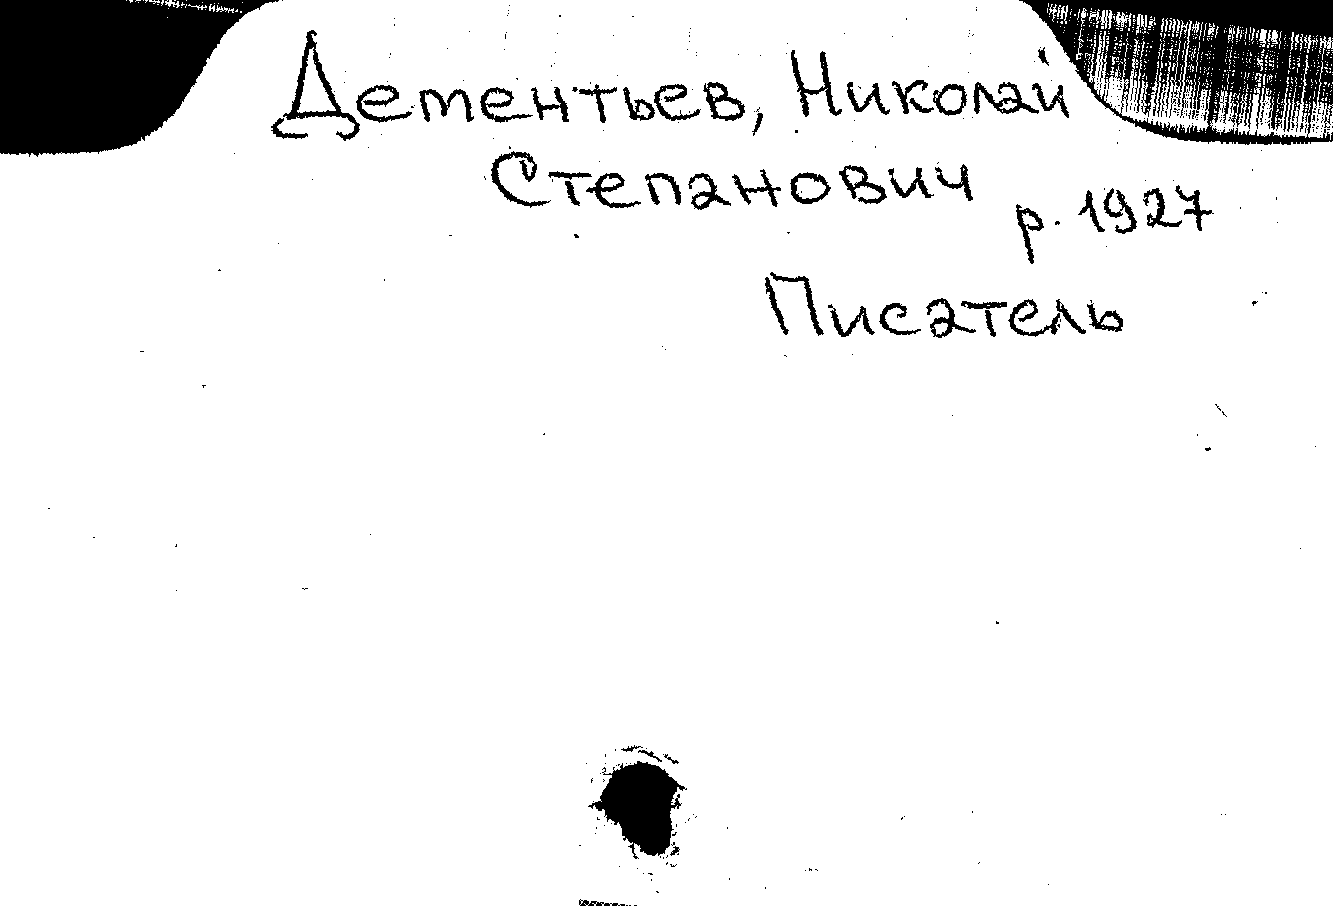 Дементьев, Николай
Степанович
р. 1927
Писатель